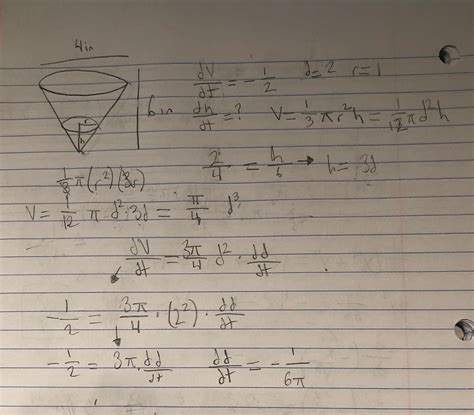 4in
dV/dt = -1/2 d=2 r=1
6in dh/dt = ? V = 1/3 πr²h = 1/12 πd²h
r
h
2/4 = h/6 → h = 3d
1/3 π(r²)(3r)
V = 1/12 π d²·3d = π/4 d³
dV/dt = 3π/4 d² · dd/dt
-1/2 = 3π/4 · (2²) · dd/dt
-1/2 = 3π · dd/dt dd/dt = -1/6π